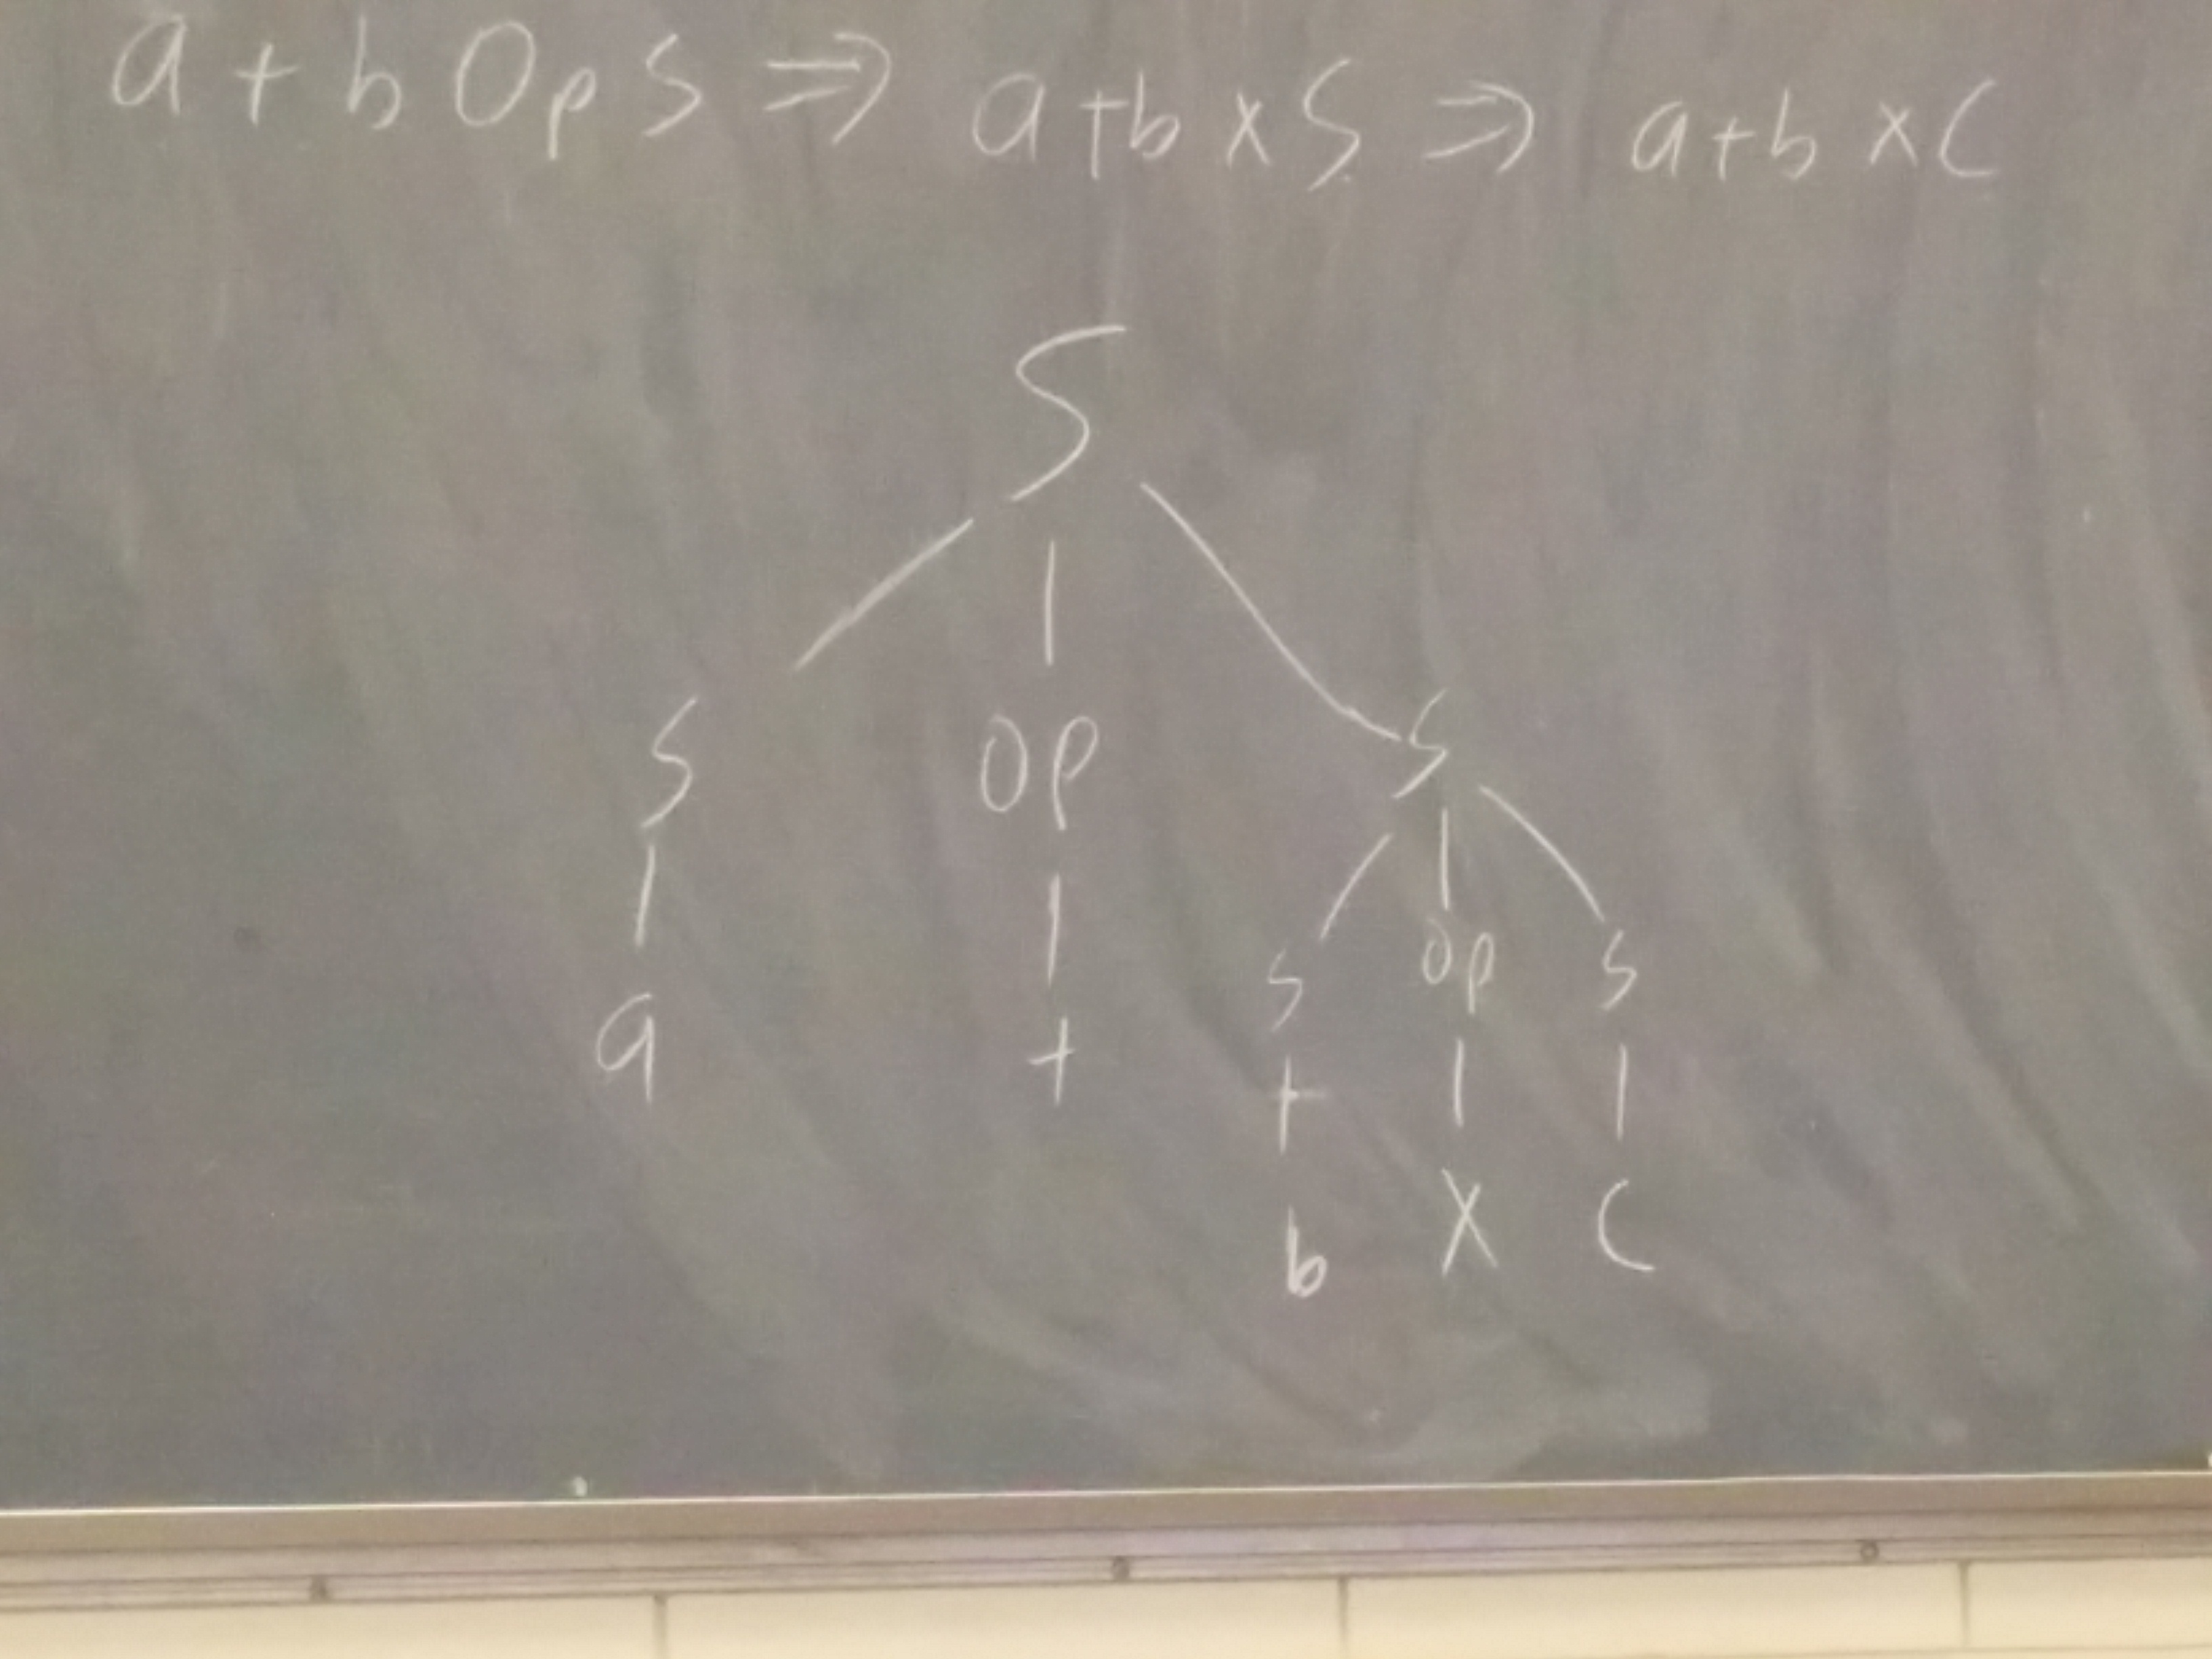 a + b Op S ⇒ a+b x S ⇒ a+b x C
S
S OP S
a + S Op S
b X C